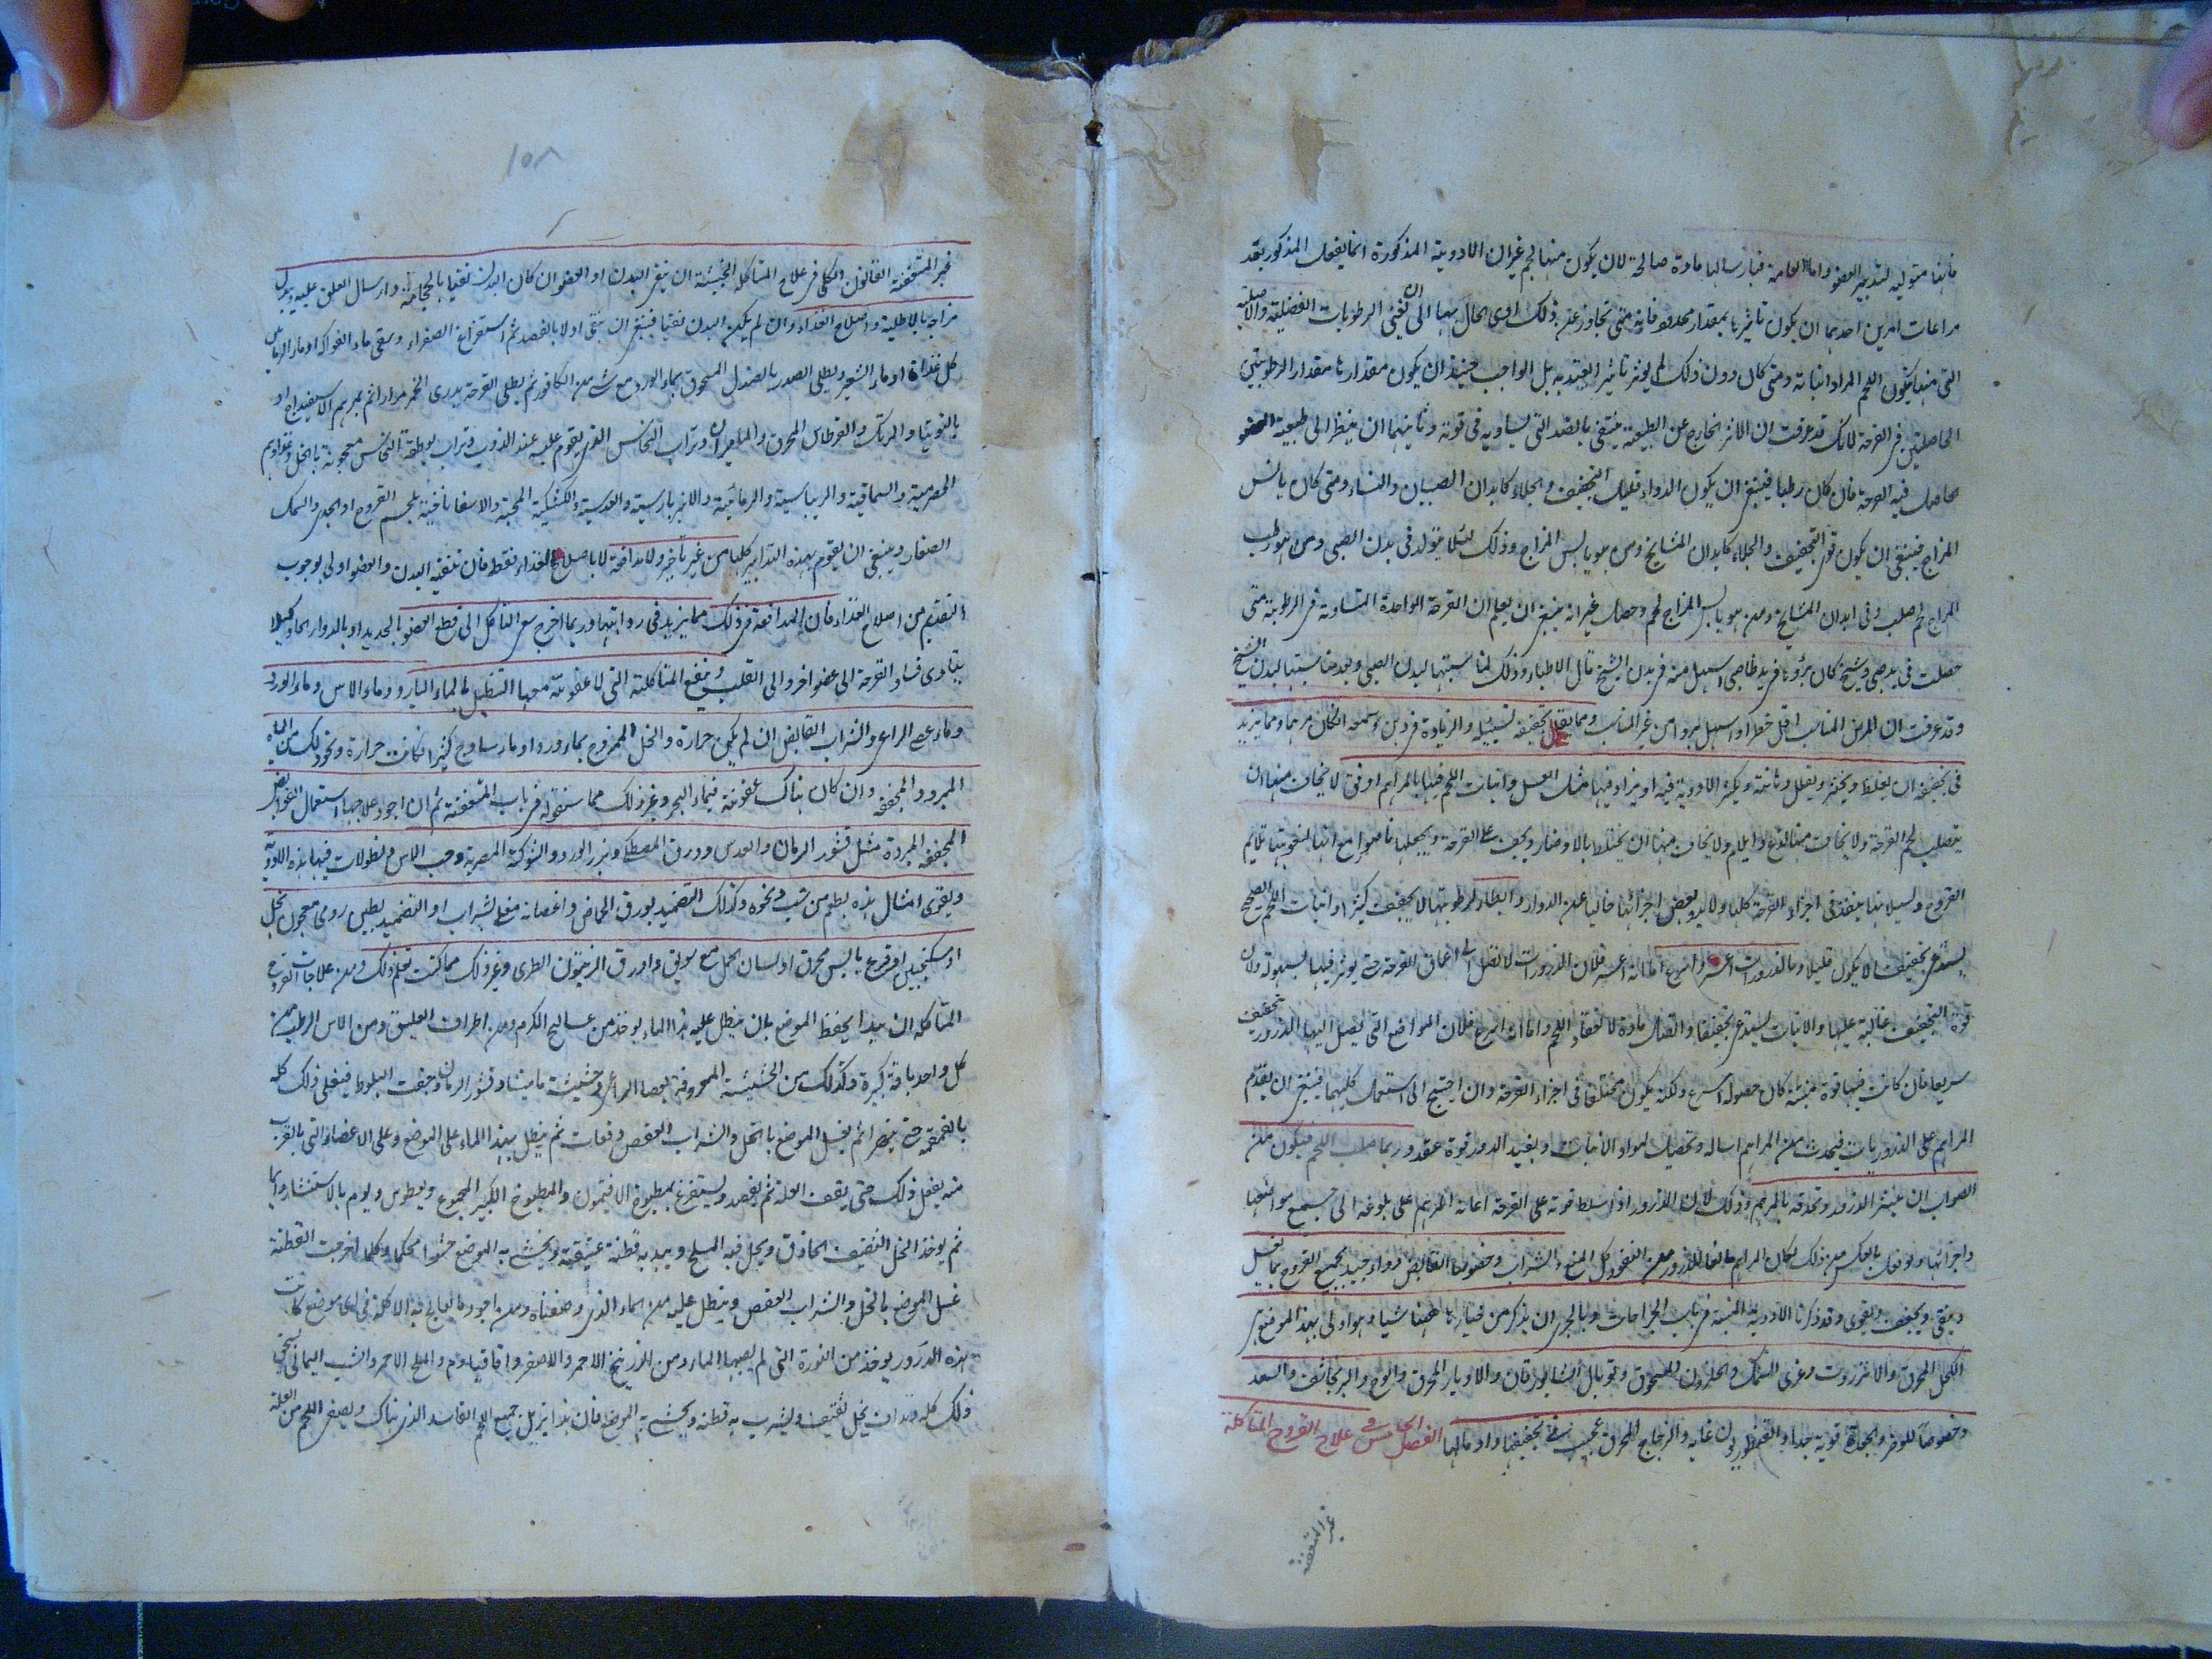 فانها متولية لتدبير العضو واما العامة فبارسالها مادة صالحة لان يكون منها لحم غير ان الادوية المذكورة انما يفعل المذكور بعد
مراعات امرين احدهما ان يكون تاثيرها بمقدار محدود فانه متى تجاوز عن ذلك ادى الحال بها الى ان تفنى الرطوبات الفضلية والاصلية
التى منها يتكون اللحم المراد انباته ومتى كان دون ذلك لم يوثر تاثيرا يعتد به بل الواجب حينئذ ان يكون مقدارها مقدار الرطوبتين
الحاصلتين فى القرحة لانك قد عرفت ان الامر الخارج عن الطبيعة ينتفى بالضد التى يساويه فى قوته وثانيهما ان ينظر الى طبيعة العضو
الحاصل فيه القرحة فان كان رطبا فينبغى ان يكون الدواء قليل التجفيف والجلاء كابدان الصبيان والنساء ومتى كان يابس
المزاج فينبغى ان يكون قوى التجفيف والجلاء كابدان المشايخ ومن هو يابس المزاج وذلك لئلا يتولد فى بدن الصبى ومن هو رطب
المزاج لحم صلب وفى ابدان المشايخ ومن هو يابس المزاج لحم رخصل غير انه ينبغى ان يعلم ان القرحة الواحدة المتساوية فى الرطوبة متى
حصلت فى بدن صبى وشيخ كان برؤها فى بدن الصبى اسهل منه فى بدن الشيخ قال الاطباء وذلك لمناسبتها لبدن الصبى وبعد مناسبتها لبدن الشيخ
وقد عرفت ان المرض المناسب اقل خطرا واسهل بروا من غير المناسب ومما يقلل تجفيفه تسييله والزيادة فى دهن وشمعه ان كان مرهما ومما يزيد
فى تجفيفه ان يغلظ ويخثر ويقلل دهانته ويكثر الادوية فيه او يزاد فيها مثل العسل وانبات اللحم فيها بالمراهم اوفق لا يخاف منها ان
يتصلب لحم القرحة ولا يخاف منها لذع او ايلام ولا يخاف منها ان يختلط بالاوضار ويجف على القرحة ويجعلها ناصورا مع انها لنعومتها تلايم
القروح ولسيلانها ينفذ فى اجزاء القرحة كلها ولا يدع بعض اجزائها خاليا عن الدواء وابطأ لرطوبتها لا يجفف كثيرا وانبات اللحم الصحيح
يستدعى تجفيفا لا يكون قليلا وبالذرورات اعسر واسرع اما انه اعسر فلان الذرورات لا تصل الى اعماق القرحة حتى يوثر فيها بسهولة ولان
قوة التجفيف غالبة عليها والانبات يستدعى تجفيفا واتصال مادة لا نعقاد اللحم واما انه اسرع فلان المواضع التى يصل اليها الذرورت تجفف
سريعا فان كانت فيها قوة منبتة كان حصوله اسرع ولكنه يكون مختلفا فى اجزاء القرحة وان احتيج الى استعمال كليهما فينبغى ان يقدم
المراهم على الذرورات فيحدث من المراهم اسالة وتحصيل لمواد الانبات ويفيد الذرور قوة عقد وربما صلب اللحم فيكون من
الصواب ان ينثر الذرور وتحدقه بالمرهم وذلك لان الذرور اذا تسلط قوته على القرحة اعانه المرهم على بلوغه الى جميع مواضعها
واجزائها ولو فعل بالعكس من ذلك لكان المراهم مانعا للذرور من النفوذ وكل المنع والشراب وخصوصا القابض دواء جيد لجميع القروح بما يغسل
وينقى ويجفف ويقوى وقد ذكرنا الادوية المنبتة فى باب الجراحات وبالحرى ان يذكر من خيارها ههنا شيئا وهو اولى بهذا الموضع فى
الكحل المحرق والانزروت وغرى السمك والحلزون المسحوق وتوبال الشابورقان والاوبار المحرق والودع والبرنجاسف والسعد
وخصوصا للوفر والجواة قوية جدا والقنطوريون غاية والزجاج المحرق عجيب فى تجفيفها وادمالها الفصل الخامس فى علاج القروح المتاكلة
غير المتعفنة
١٥٨
غير المتعفنة القانون الكلى فى علاج المتاكلة الخبيثة ان ينقى البدن او العضو ان كان البدن نقيا بالحجامة وارسال العلق عليه ويبدل
مزاجه بالاطلية واصلاح الغذاء وان لم يكن البدن نقيا فينبغى ان ينقى اولا بالفصد ثم استفراغ الصفراء ويسقى ماء الفواكه او ماء الرمانين
كل غداة او ماء الشعير ويطلى الصدر بالصندل المسحوق بماء الورد مع شئ من الكافور ثم يطلى القرحة بدردى الخمر مرارا ثم بمرهم الاسفيداج او
بالتوتيا والمرتك والقرطاس المحرق والزعفران وتراب النحاس الذى يقوم عليه عند الذوب وتراب بوطقة النحاس معجونة بالخل وغذاوهم
الحصرمية والسماقية والريباسية والرمانية والانبرباريسية والعدسية والكشكية المجبنة والاسفاناخية بلحم الفروج او الجدى والسمك
الصغار وينبغى ان يقوم بهذه التدابير كلها من غير تاخير ولا مدافعة لا باصلاح الغذاء فقط فان تنقية البدن والعضو اولى بوجوب
التقديم من اصلاح الغذاء فان المدافعة فى ذلك مما يزيد فى رداءتها وربما اخرج سعى التاكل الى قطع العضو بالحديد او بالدواء الحاد كيلا
يتادى فساد القرحة الى عضو اخر والى القلب وينفع المتاكلة التى لا عفونة معها التنطيل بالماء البارد وماء الاس وماء الورد
وماء عصى الراعى والشراب القابض ان لم يكن حرارة والخل الممزوج بماء ورد او ماء ساذج كثير ان كانت حرارة ونحو ذلك من المياه
المبرد والمجففة وان كان هناك عفونة فبماء البحر وغير ذلك مما سنقوله فى باب المتعفنة ثم ان اجود علاجها استعمال القوابض
المجففة المبردة مثل قشور الرمان والعدس وورق المصطكى وبزر الورد والشوكة المصرية وحب الاس ونطولات فيها هذه الادوية
ويقوى امثال هذه بطعم من شب ونحوه وكذلك التضميد بورق الحماض واغصانه مغلى بشراب او التضميد بطين رومى معجون بخل
او سكنجبين او قرع يابس محرق او لسان حمل مع سويق واورق الزيتون الطرى وغير ذلك مما كنت تعلم ذلك ومن علاجات القروح
المتاكله ان يبدا بحفظ الموضع بان ينطل عليه هذا الماء يوخذ من عساليج الكرم ومن اطراف العليق ومن الاس الرطب من
كل واحد باقة كبيرة وكذلك من الحشيشة المعروفة بعصا الراعى وحشيشة ماميثا وقشور الرمان وجفت البلوط فيغلى ذلك كله
بالقمقمة حتى ينضج ثم يغسل الموضع بالخل والشراب العفص دفعات ثم ينطل بهذا الماء على الموضع وعلى الاعضاء التى بالقرب
منه يفعل ذلك حتى يقف العلة ثم يفصد ويستفرغ بمطبوخ الافتيمون والمطبوخ الكبير المجموع ويعطوس ويوم بالاستنشار دايما
ثم يوخذ الخل الثقيف الحاذق ويجعل فيه الملح ويبد به قطنة عتيقة ويحشى به الموضع حشوا محكما وكلما اخرجت القطنة
غسل الموضع بالخل والشراب العفص وينطل عليه من الماء الذى وصفناه ومن اجود ما يعالج به الاكلة فى اى موضع كانت
هذه الذرور يوخذ من النورة التى لم يصبها الماء ومن الزرنيخ الاحمر والاصفر واقاقيا وم والملح الاحمر والشب اليمانى يسحق
ذلك كله وداف بخل ثقيف ويشرب به قطنة ويحشى به الموضع فان هذا يزيل جميع اللحم الفاسد الذى هناك ويصفى اللحم من العلة